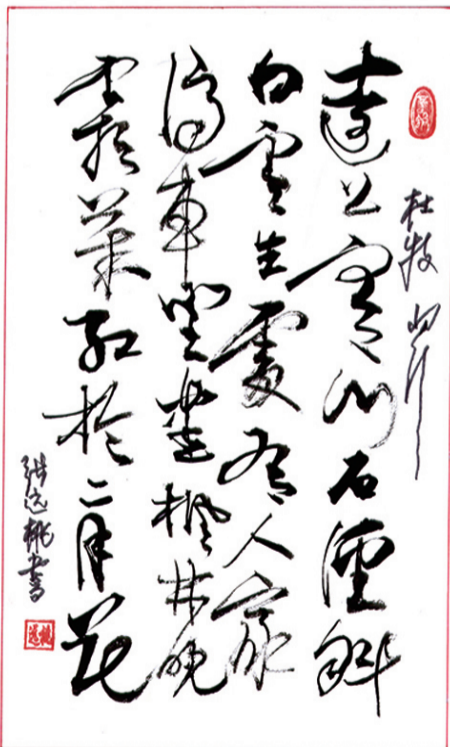 杜牧 山行
遠上寒山石徑斜
白雲生處有人家
停車坐愛楓林晚
霜葉紅於二月花
書